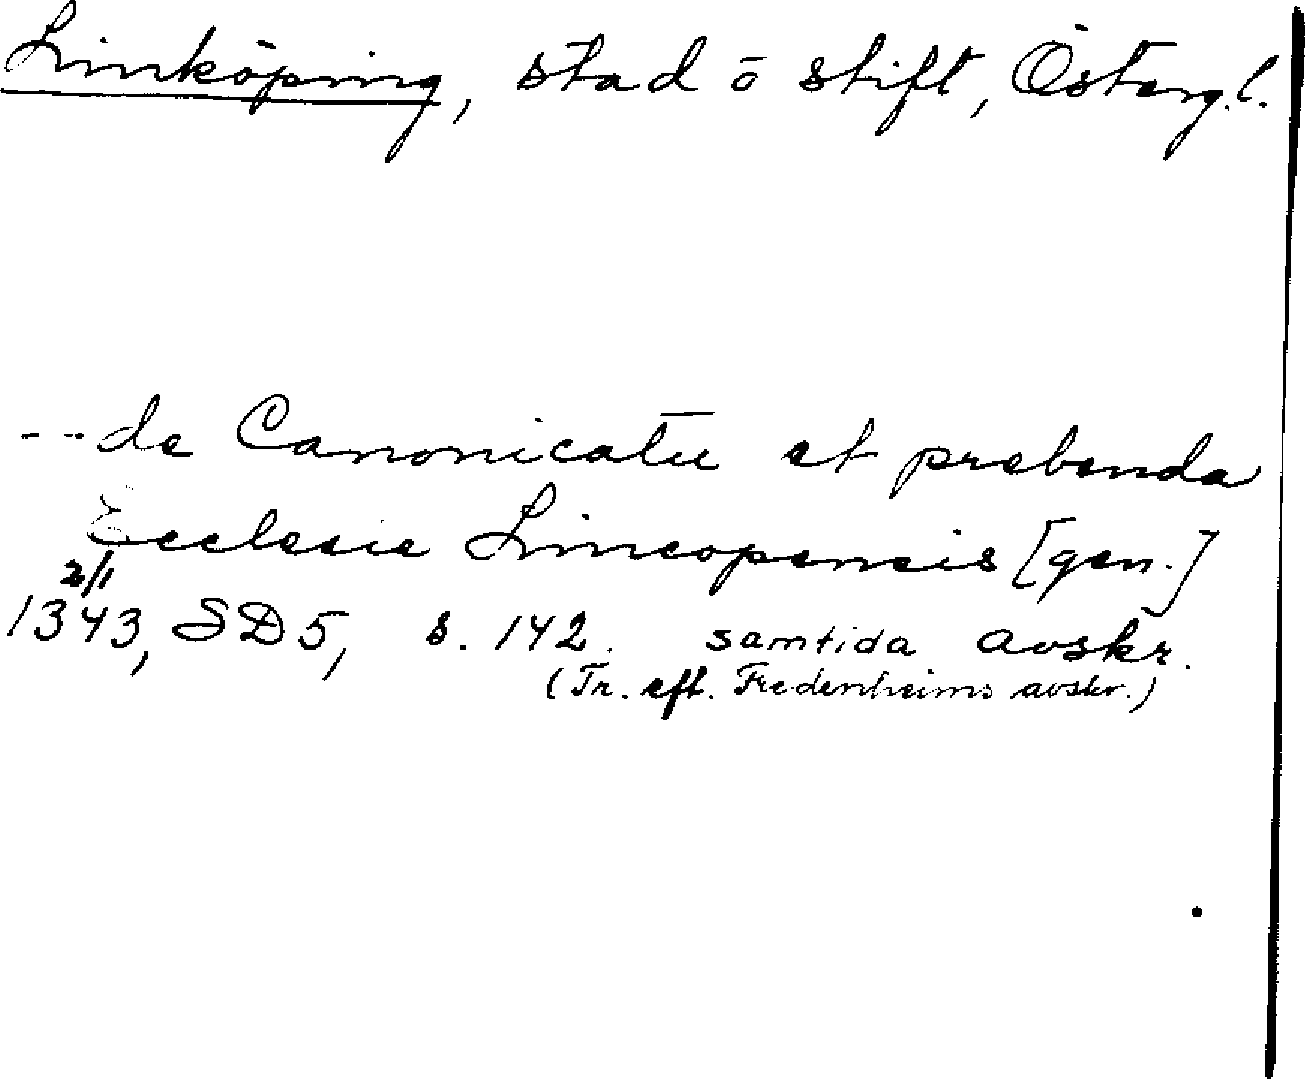 Linköping, stad o stift, Österg.l.
-- de Canonicatu et prebenda
Ecclesie Lincopensis [gen.]
2/1
1343, SD5, s. 142. samtida avskr.
(Tr. eft. Fredenheims avskr.)